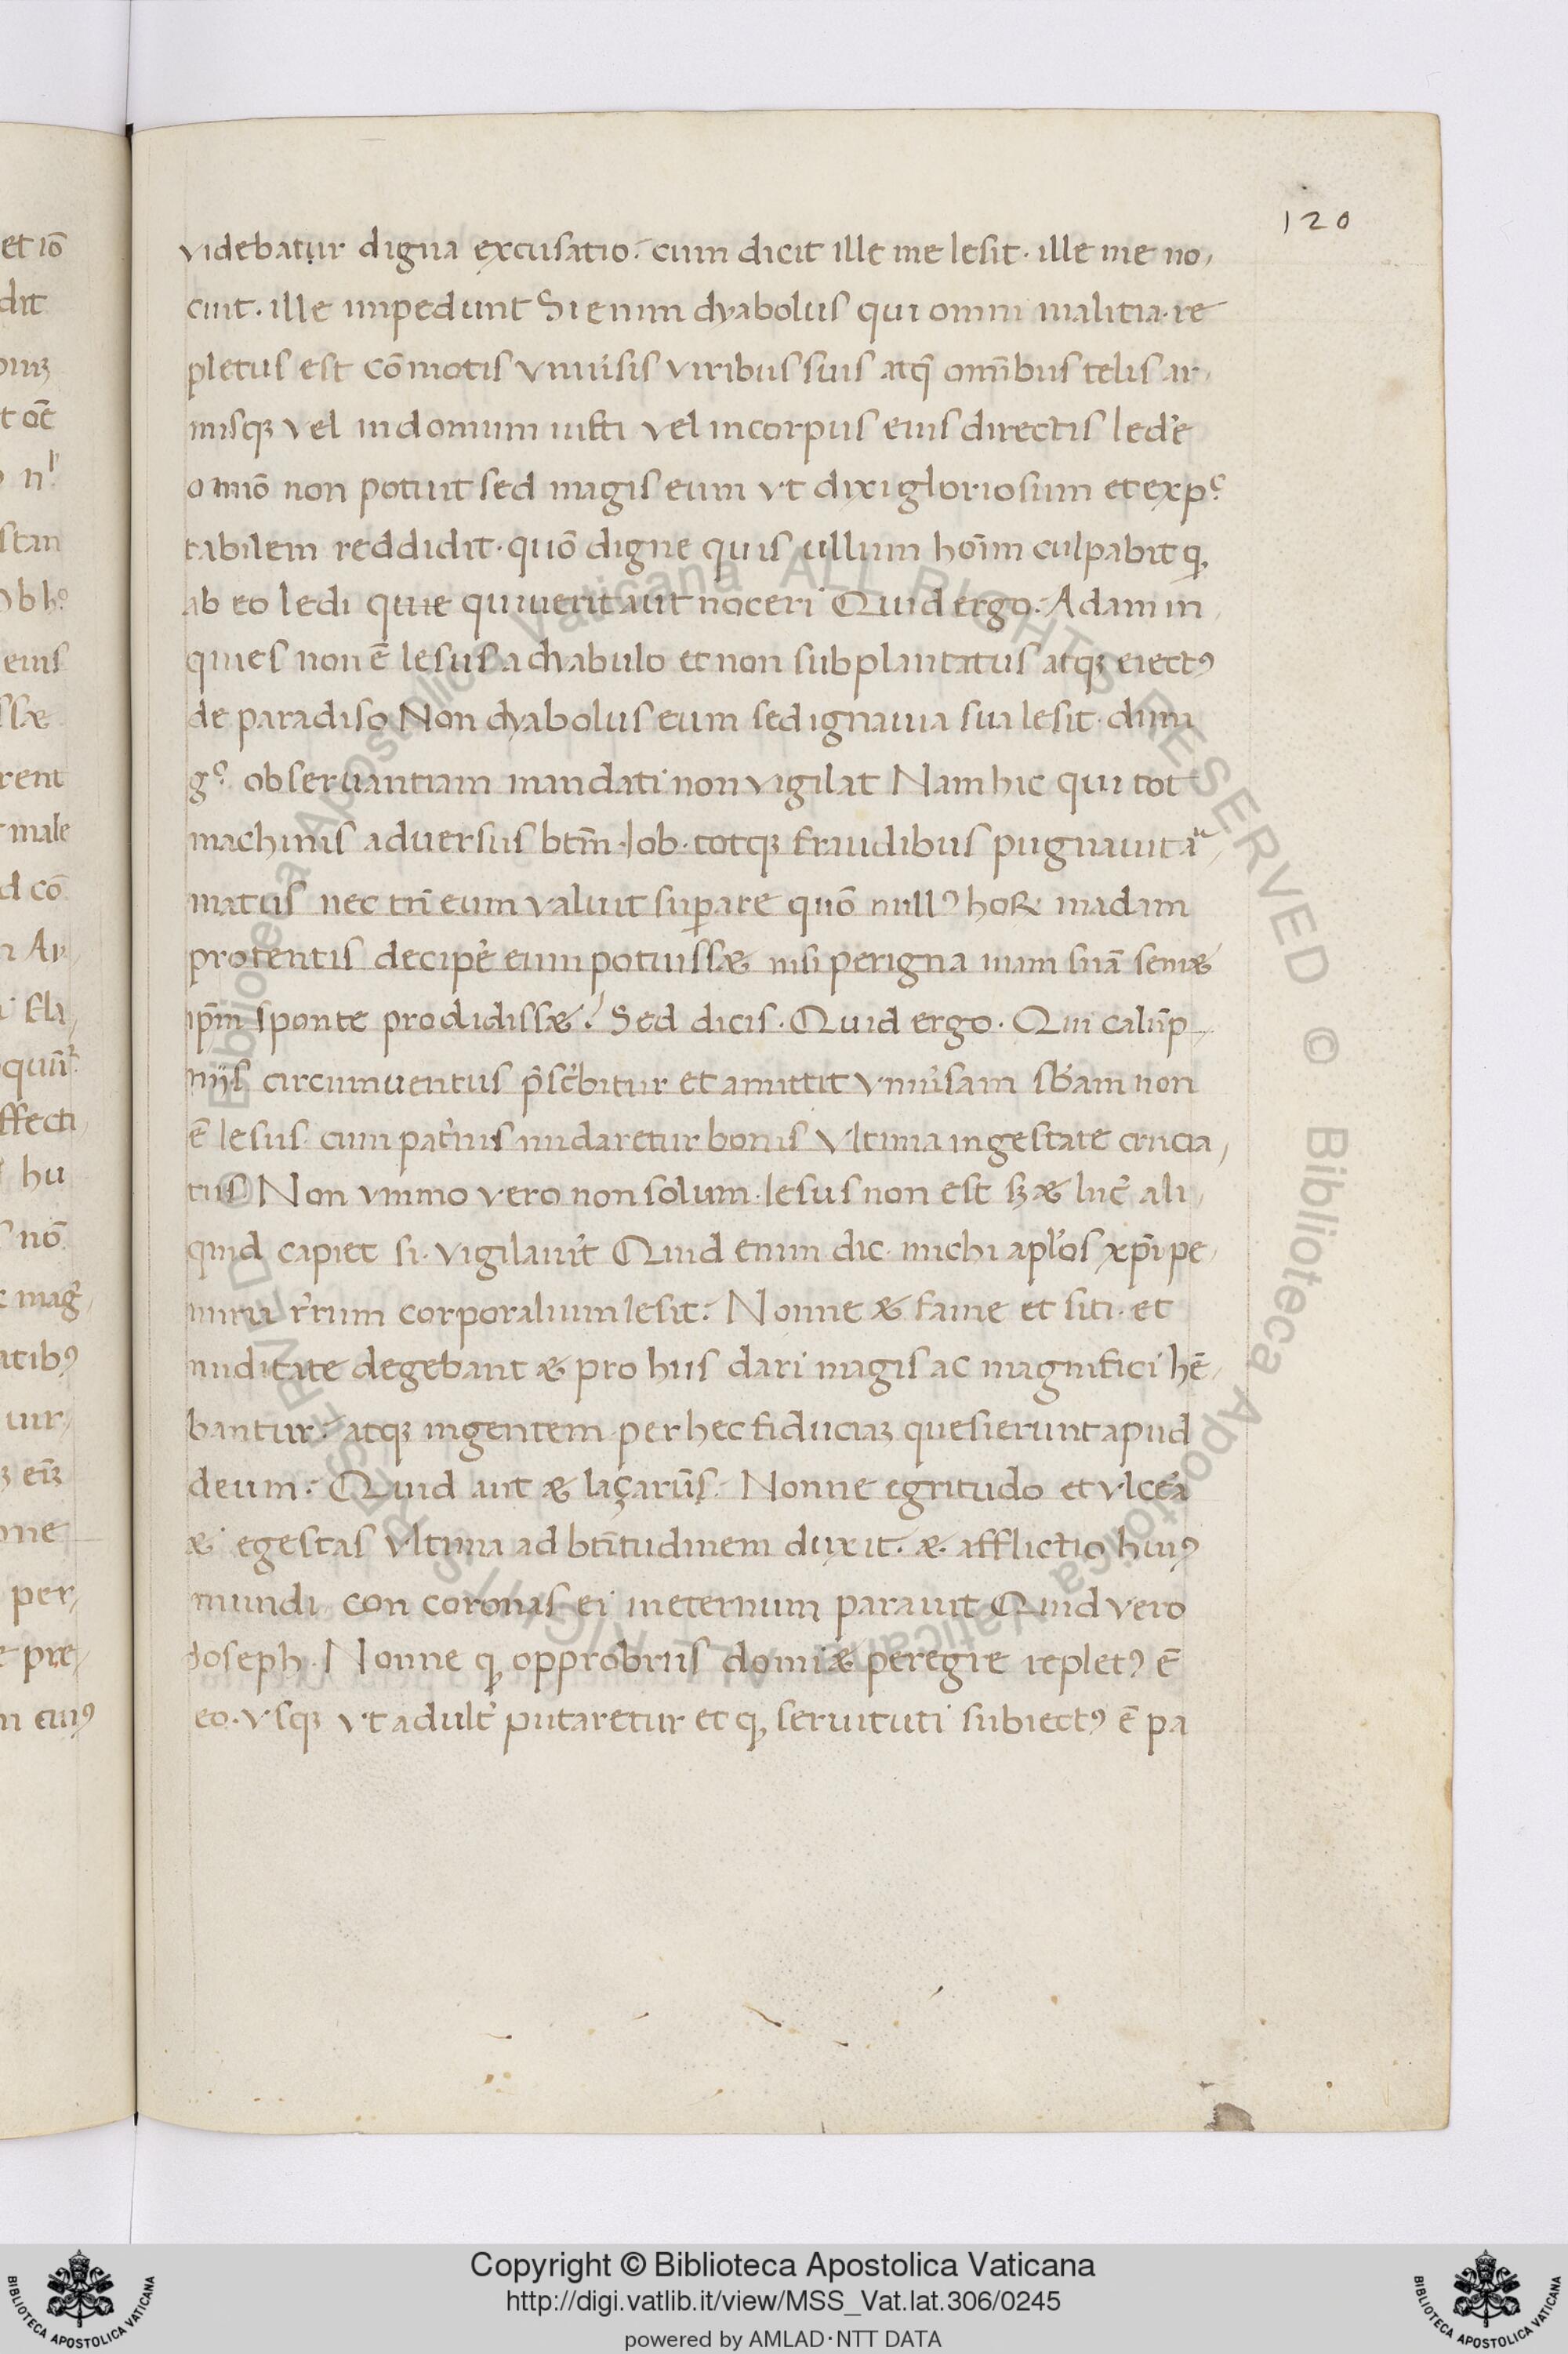 120
videbatur digna excusatio. cum dicit ille me lesit. ille me no,
cuit. ille impediuit Si enim dyabolus qui omni malitia. re
pletus est cōmotis vniu̓sis viribus suis atq̄ omībus telis. ar,
misqꝫ vel in domum iusti vel in corpus eius directis led̓e
omīo non potuit sed magis eum vt dixi gloriosum et exp
tabilem reddidit. quō digne quis ullum hoīm culpabit ꝙ
ab eo ledi quie quiuerit aut noceri Quid ergo. Adam in
quies non ē lesus a dyabulo et non subplantatus atqꝫ eiectꝰ
de paradiso Non dyabolus eum sed ignauia sua lesit. dum
g° obseruantiam mandati non vigilat Nam hic qui tot
machinis adversus btm̄. Iob. totqꝫ fraudibus pugnauit
matus nec tn̄ eum valuit suꝑare quō nullꝰ hoꝝ madam
protentis decip̓e eum potuissæ nisi per igna uiam suā semæ
ip̄m sponte prodidissæ. Sed dicis. Quid ergo. Qui calūp
niis circumuentus p̄sc̓bitur et amittit vniu̓sam sb̓am non
ē lesus. cum pat̓nis nudaretur bonis Vltima in gestate crucia,
tus Non ymmo vero non solum. lesus non est sꝫ æ luc̓ ali,
quid capiet si. vigilauit̓ Quid enim dic. michi apl̓os xp̄i pe,
nuria r̓rum corporalium lesit. Nonne æ fame et siti. et
nuditate degebant æ pro hiis dari magis ac magnifici hē,
bantur. atqꝫ ingentem per hec fiduciaꝫ quesierunt apud
deum. Quid aut æ laçarūs. Nonne egritudo et vlce̓a
æ egestas vltima ad btītudinem duxit. æ. afflictio huiꝰ
mundi con coronas ei in eternum parauit Quid vero
Ioseph. Nonne ꝙ opprobriis domi æ peregre repletꝰ ē
eo. vsqꝫ vt adult̓ putaretur et ꝙ seruituti subiectꝰ ē pa
Copyright © Biblioteca Apostolica Vaticana
http://digi.vatlib.it/view/MSS_Vat.lat.306/0245
powered by AMLAD·NTT DATA